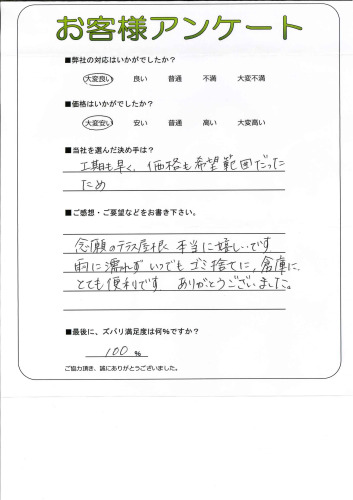 お客様アンケート
■弊社の対応はいかがでしたか？
大変良い 良い 普通 不満 大変不満
■価格はいかがでしたか？
大変安い 安い 普通 高い 大変高い
■当社を選んだ決め手は？
工期も早く、価格も希望範囲だった
ため
■ご感想・ご要望などをお書き下さい。
念願のテラス屋根 本当に嬉しいです
雨に濡れず いつでも ゴミ捨てに、倉庫に、
とても便利です ありがとうございました。
■最後に、ズバリ満足度は何%ですか？
100 %
ご協力頂き、誠にありがとうございました。